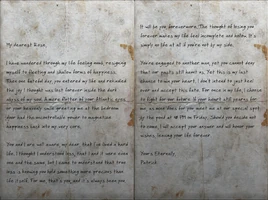 My dearest Rose,
I have wandered through my life feeling numb, resigning
myself to fleeting and shallow forms of happiness.
Then one fateful day, you entered my life and rekindled
the joy I thought was lost forever inside the dark
abyss of my soul. A mere flutter of your eyes
or your heavenly smile greeting me at the bedroom
door had the uncontrollable power to
happiness back into my very core.
You and I are not aware, my dear, that we lead a hard
life. I thought I understood loss, that I and it were once
one and the same, but I came to understand that true
loss is having you hold something more precious than
life itself. For me, that's you and it's always been you.
It will be you forevermore. The thought of losing you
forever makes my life feel incomplete and hollow. It's
simply no life at all if you're not by my side.
You're engaged to another man, yet you cannot deny
that our souls still yearn so. Yet this is my last
chance to win your heart. I don't intend to just heel
over and accept this fate. For once in my life, I choose
to fight for our future. If your heart still yearns for
me, as mine does for you, meet me at our special spot
by the pond at PM on Friday. Should you decide not
to come, I will accept your answer and will honor your
wishes, leaving your life forever.
Yours Eternally,
Patrick